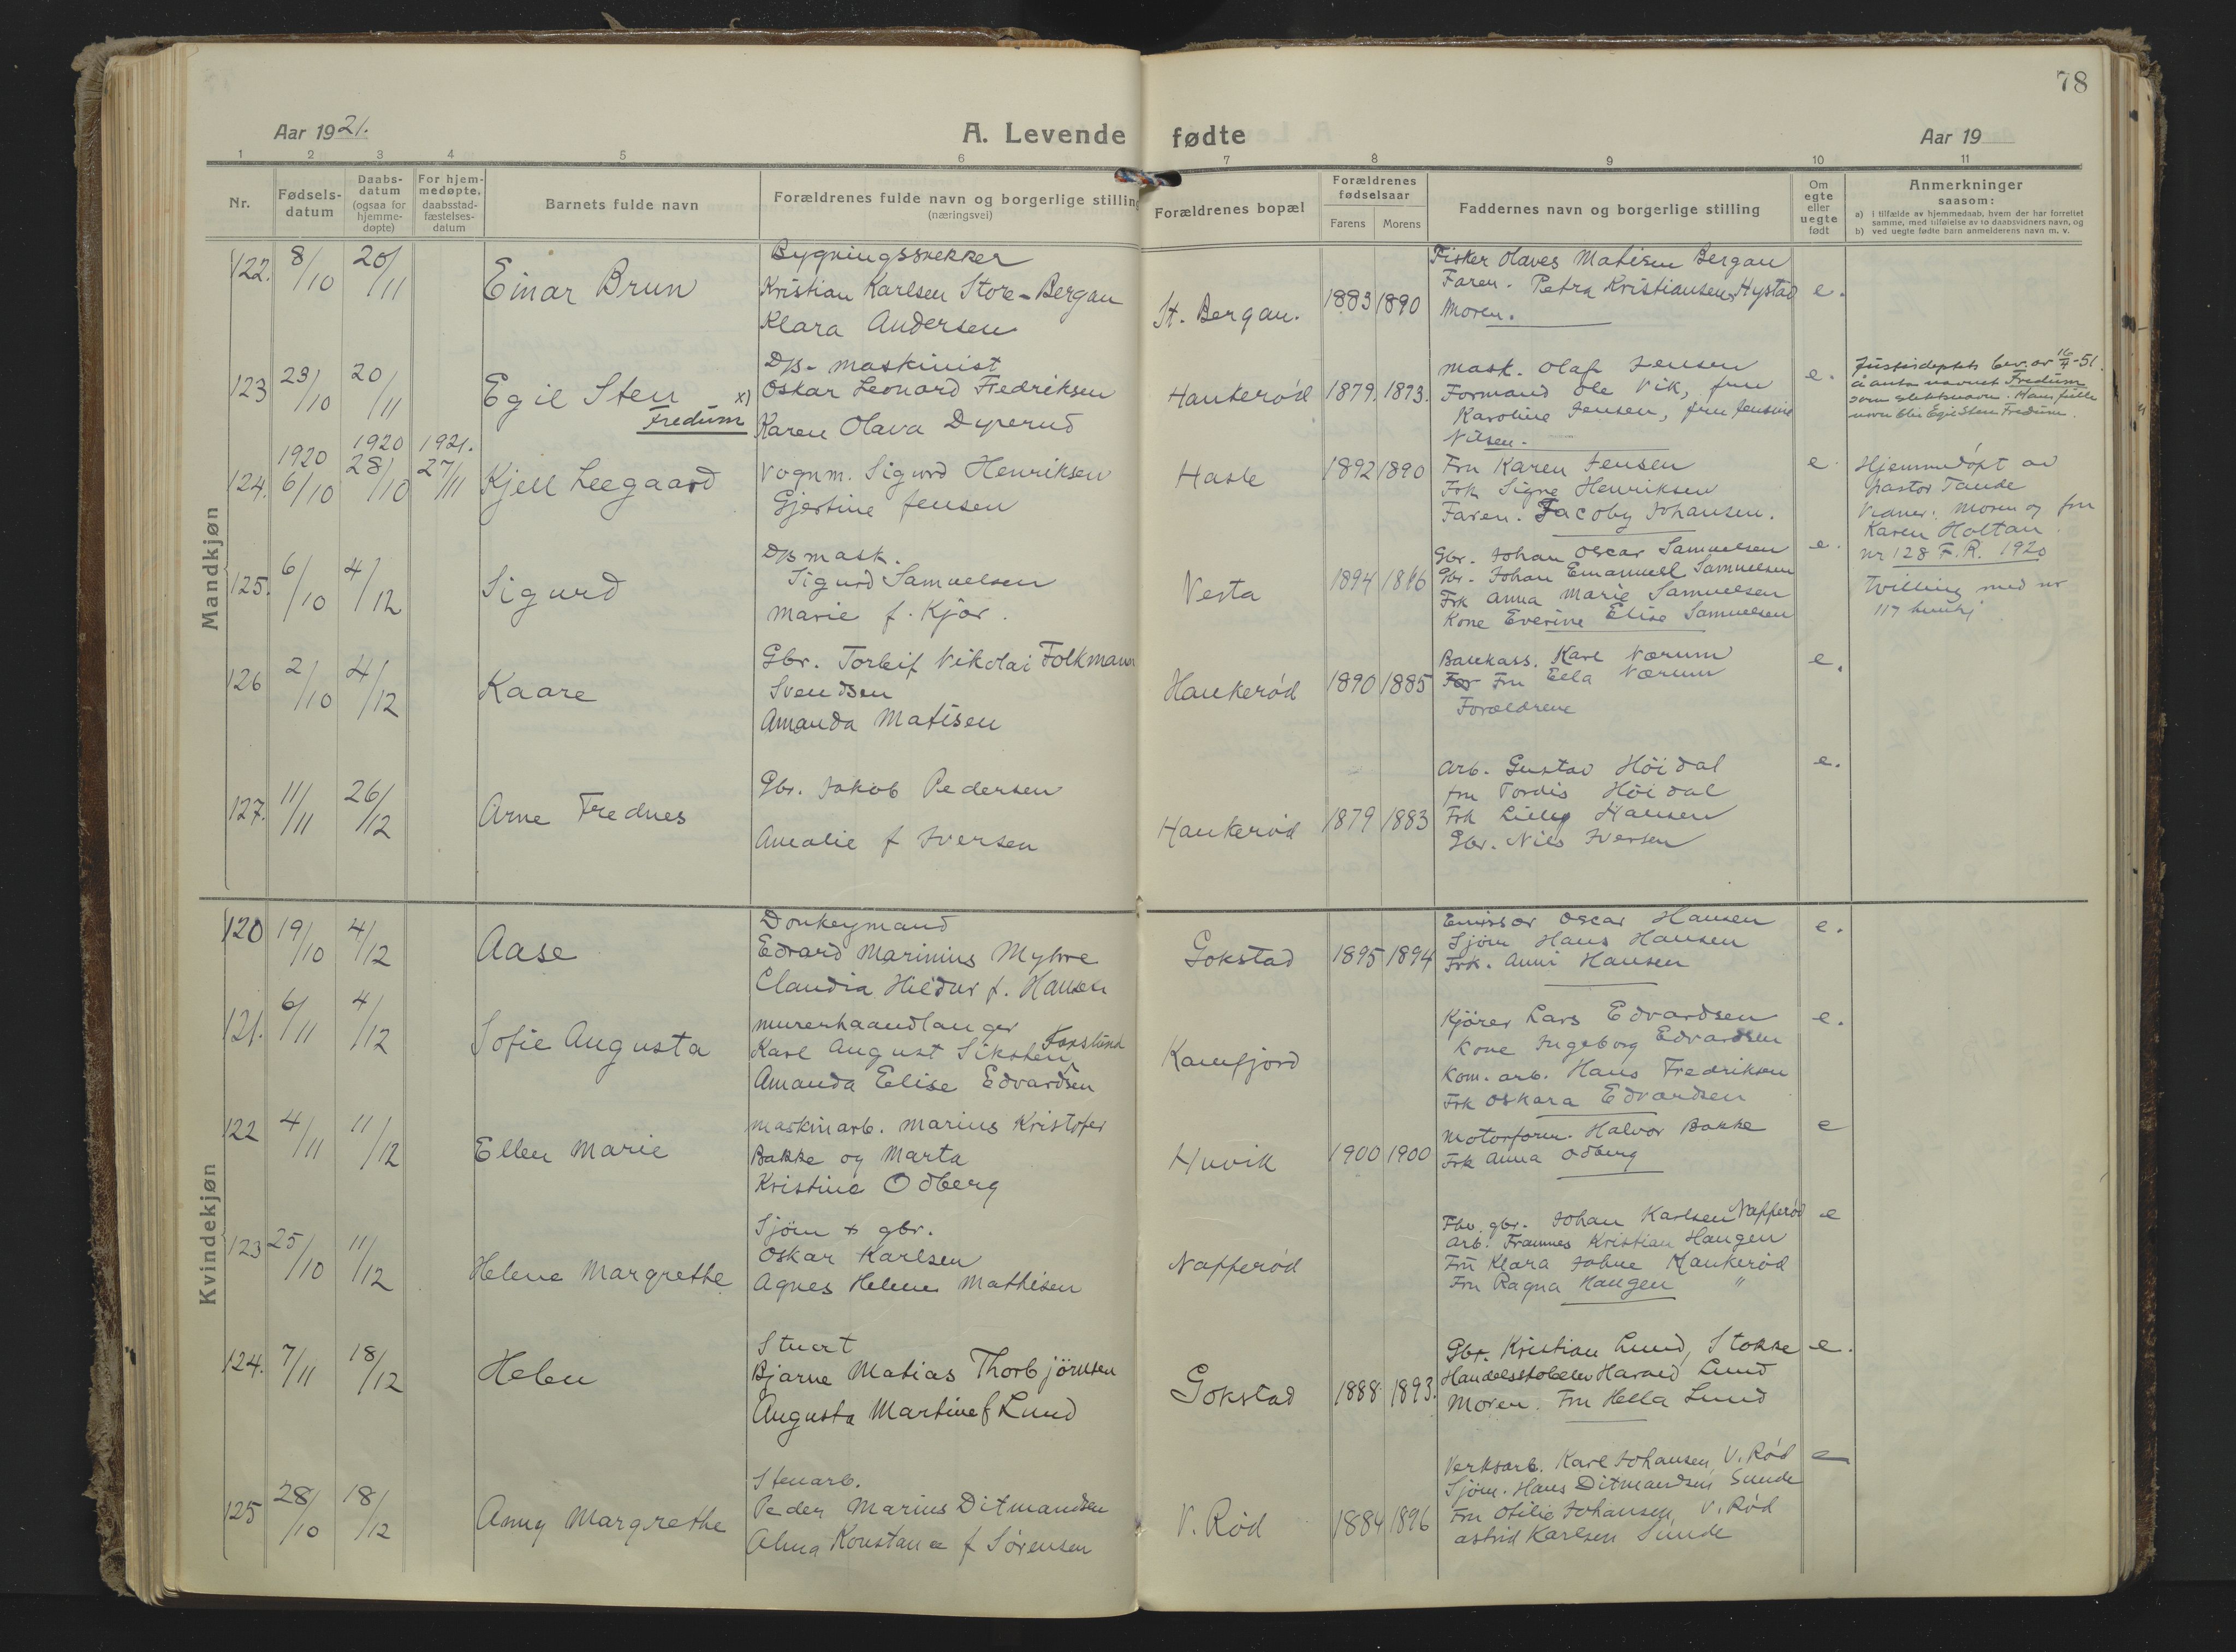 78
Aar 1921.
A. Levende fødte
Aar 19
1 2 3 4 5 6 7 8 9 10 11
Nr.
Fødsels-
datum
Daabs-
datum
(ogsaa for
hjemme-
døpte)
For hjem-
medøpte,
daabsstad-
fæstelses-
datum
Barnets fulde navn
Forældrenes fulde navn og borgerlige stilling
(næringsvei)
Forældrenes bopæl
Forældrenes
fødselsaar
Farens Morens
Faddernes navn og borgerlige stilling
Om
egte
eller
uegte
født
Anmerkninger
saasom:
a) i tilfælde av hjemmedaab, hvem der har forrettet
samme, med tilføielse av to daabsvidners navn, og
b) ved uegte fødte barn anmelderens navn m. v.
Mandkjøn
122. 8/10 20/11
Einar Brun
Bygningssnekker
Kristian Karlsen Store-Bergan
Klara Andersen
St. Bergan. 1883 1890
Fisker Olaves Matisen Bergan
Faren. Petra Kristiansen Hystad
Moren.
e.
123 23/10 20/11
Egil Sten x)
Fredum
D/S-maskinist
Oskar Leonard Fredriksen
Karen Olava Dyrerud
Haukerød 1879. 1893.
Mask. Olaf Jensen
Formand Ole Vik, fru
Karoline Jensen, fru Jensine
Nilsen.
e.
Justisdeptets bev. av 16/4-51.
å anta navnet Fredum
som slektsnavn. Hans fulle
navn blir Egil Sten Fredum.
124. 1920 6/10 1920 28/10 1921. 27/11
Kjell Leegaard
Vognm. Sigurd Henriksen
Gjertine Jensen
Hasle 1892 1890
Fru Karen Jensen
Frk Signe Henriksen
Faren. Jacob Johansen.
e.
Hjemmedöpt av
pastor Tande
Vidner: Moren og fru
Karen Holtan.
nr 128 F.R. 1920
125. 6/10 4/12
Sigurd
D/S mask.
Sigurd Samuelsen
Marie f. Kjær.
Vesta 1894
Gbr. Johan Oscar Samuelsen
Gbr. Johan Emanuel Samuelsen
Frk Anna Marie Samuelsen
Kone Everine Elise Samuelsen
e.
Tvilling med nr
117
126 2/10 4/12
Kaare
Gbr. Torleif Nikolai Folkmann
Svendsen
Amanda Matisen
Haukerød 1890 1885
Bankass. Karl Nærum
Fru Ella Nærum
Forældrene
e.
127. 11/11 26/12
Arne Frednes
Gbr. Jakob Pedersen
Amalie f Iversen
Haukerød 1879 1883
Arb. Gustav Höidal
fru Tordis Höidal
Frk Lilly Hansen
Gbr. Nils Iversen
e.
Kvindekjøn
120 19/10 4/12
Aase
Donkeymand
Edvard Marinius Myhre
Claudia Hildur f. Hansen
Gokstad 1895 1894
Emissær Oscar Hansen
Sjøm Hans Hansen
Frk. Anni Hansen
e.
121. 6/11 4/12
Sofie Augusta
Murerhaandlanger
Karl August Siksten Forslund
Amanda Elise Edvardsen
Kamfjord
Kjører Lars Edvardsen
Kone Ingeborg Edvardsen
Kom. arb. Hans Fredriksen
Frk Oskara Edvardsen
e.
122 4/11 11/12
Ellen Marie
Maskinarb. Marius Kristofer
Bakke og Marta
Kristine Odberg
Huvik 1900 1900
Motorform. Halvor Bakke
Frk Anna Odberg
e
123 25/10 11/12
Helene Margrethe
Sjøm & gbr.
Oskar Karlsen
Agnes Helene Mathisen
Napperød
Fhv. gbr. Johan Karlsen Napperød
Arb. Framnes Kristian Haugen
Fru Klara Johne Haukerød
Fru Ragna Haugen "
e
124. 7/11 18/12
Helen
Stuert
Bjarne Matias Thorbjörnsen
Augusta Martine f Lund
Gokstad 1888 1893.
Gbr. Kristian Lund, Stokke
Handelsskoleelev Harald Lund
Moren. Fru Hella Lund
e.
125 28/10 18/12
Anny Margrethe
Stenarb.
Peder Marius Ditmandsen
Alma Konstance f Sørensen
V. Rød 1884 1896
Verksarb. Karl Johansen, V. Rød
Sjøm. Hans Ditmandsen Sunde
Fru Otilie Johansen, V. Rød
Astrid Karlsen Sunde
e